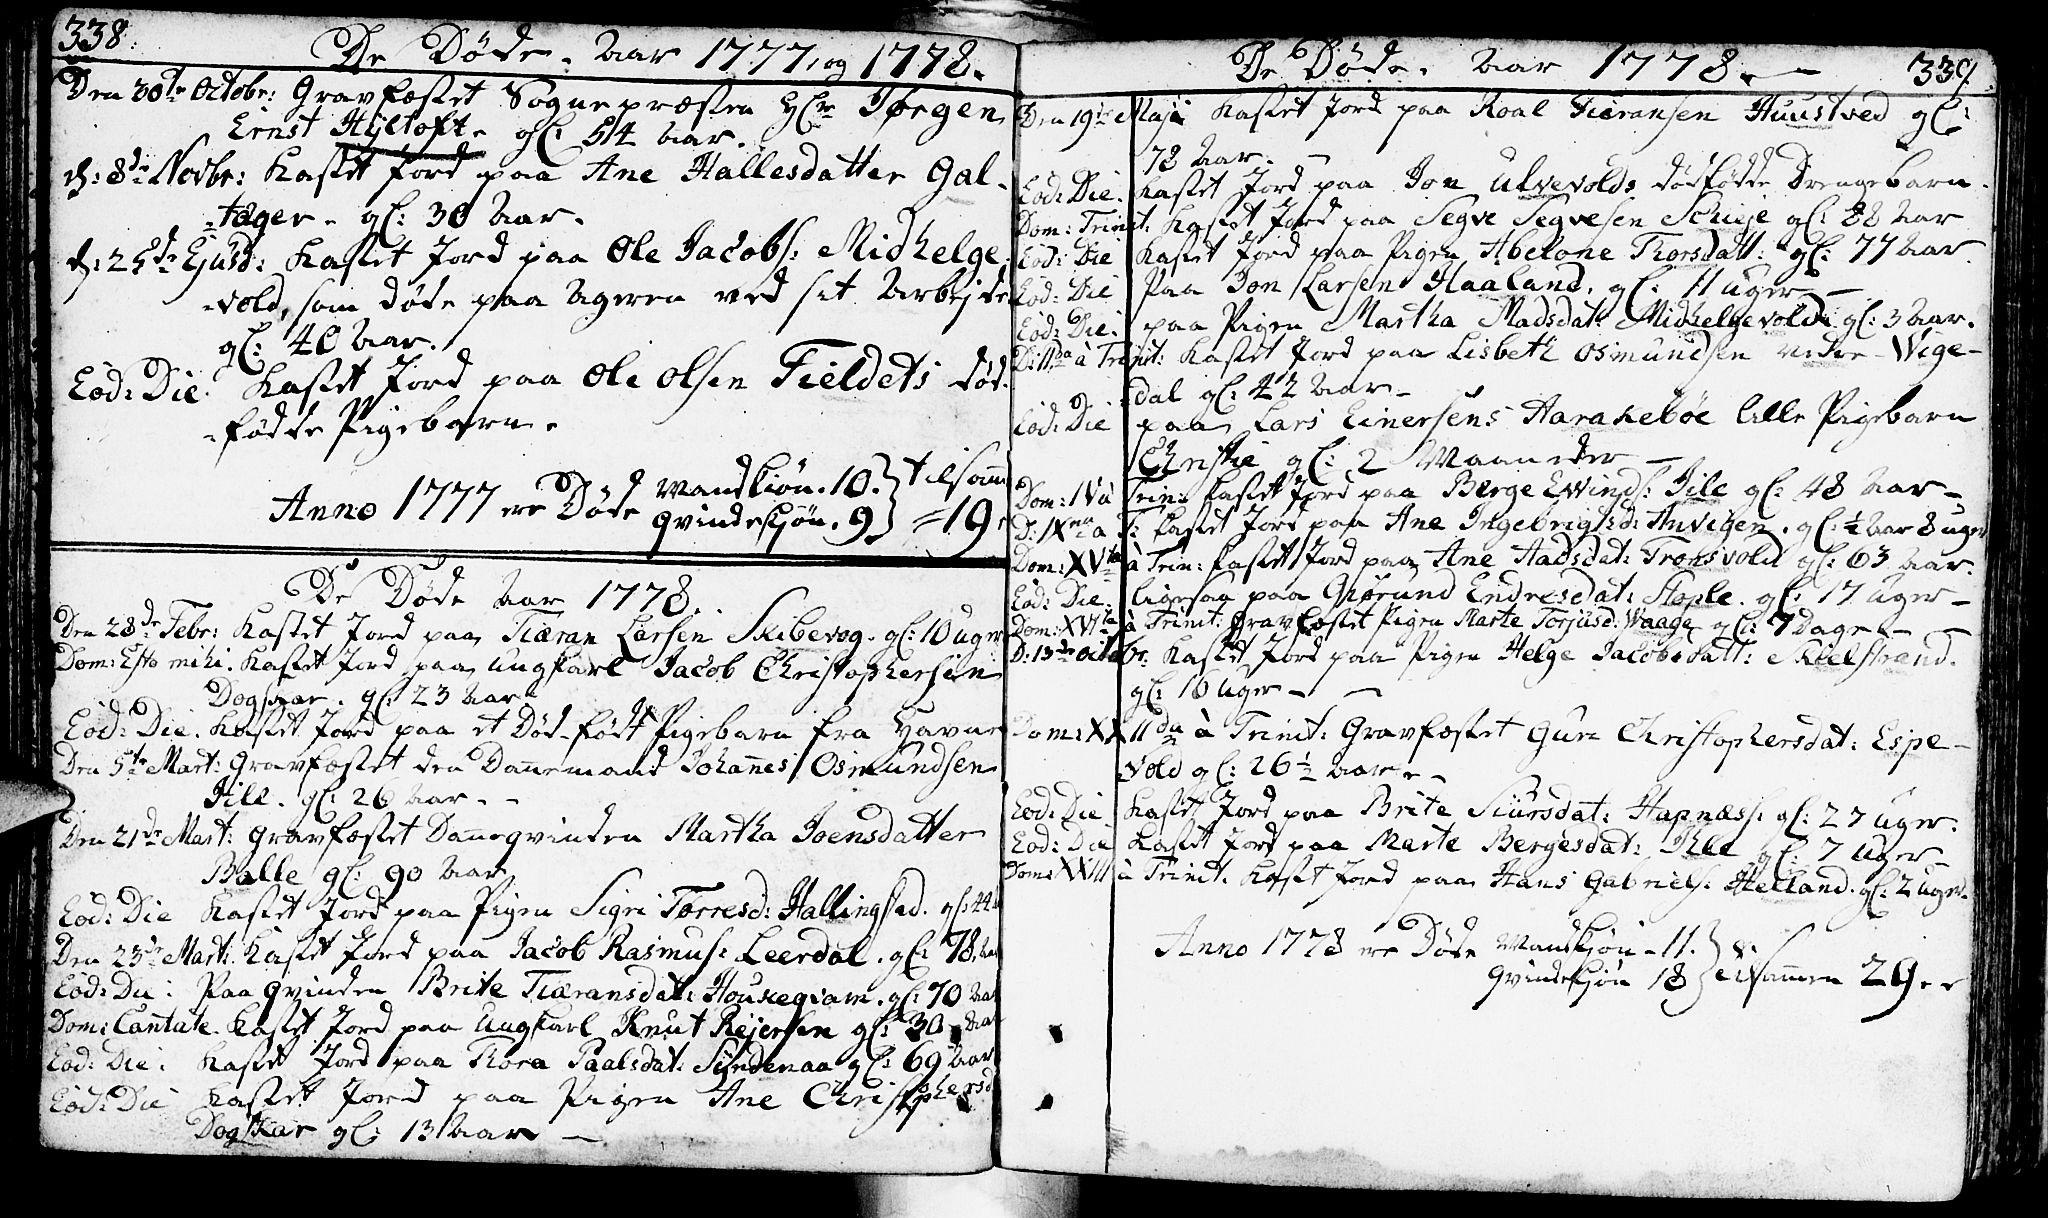 338.
De Døde. Aar 1777, og 1778.
Den 30te Octobr: Gravfæstet Sognepræsten Hr Jørgen
Ernst Hyltoft. gl: 54 Aar.
d: 8de Novbr: Kastet Jord paa Ane Hallesdatter Gal-
-tager. gl: 30 Aar.
d: 25de Ejusd: Kastet Jord paa Ole Jacobs: Midhelge-
-vold, som døde paa Ageren ved sit Arbejde
gl: 40 Aar.
Eod: Die. Kastet Jord paa Ole Olsen Fieldets død-
-fødde Pigebarn.
Anno 1777 ere Døde Mandkiøn. 10. } tilsam̄
qvindekjøn. 9 } = 19.
De Døde Aar 1778.
Den 28de Febr: Kastet Jord paa Tiæran Larsen Skibevog. gl: 10 uger
Dom: Esto mihi. Kastet Jord paa ungkarl Jacob Christophersen
Dogskar. gl: 23 Aar
Eod: Die. Kastet Jord paa et Død-født Pigebarn fra Havne
Den 5te Mart: Gravfæstet den Dannemand Johan̄es Osmundsen
Hille. gl: 26 Aar. -
Den 21de Mart: gravfæstet Danneqvinden Martha Joensdatter
Balle gl: 90 Aar
Eod: Die Kastet Jord paa Pigen Sigri Torresd: Hallingstad. gl: 44
Den 23de Mart: Kastet Jord paa Jacob Rasmus: Leerdal. gl: 78. Aar
Eod: Die: Paa qvinden Brite Tiæransdat: Houkegiam. gl: 70 Aar
Dom: Cantate Kastet Jord paa ungkarl Knut Rejersen gl: 30 Aar
Eod: Die: Kastet Jord paa Thora Paalsdat: Syndenaa gl: 69 Aar
Eod: Die Kastet Jord paa Pigen Ane Christophersd
Dogskar gl: 13 Aar -
De Døde. Aar 1778. -
339.
Den 19de Maji Kastet Jord paa Roal Tiæransen Huustved gl:
78 Aar. -
Eod: Die. Kastet Jord paa Jon Ulvevolds dødfødde Drengebarn.
Dom: Trinit: Kastet Jord paa Segve Segvesen Schieje gl: 88 Aar
Eod: Die Kastet Jord paa Pigen Abelone Thorsdatt: gl: 77 Aar.
Eod: Die Paa Jon Larsen Haaland. gl: 11 uger -
Eod: Die: paa Pigen Martha Madsdat: Midhelgevold gl: 3 Aar.
D: 11da à Trinit: Kastet Jord paa Lisbeth Osmundsen nedre-Vige-
-dal gl: 42 Aar -
Eod: Die paa Lars Einersens Aarakebøe lille Pigebarn
Christie gl: 2 Maaneder -
Dom: IV à Trin: Kastet Jord paa Berge Ewinds: Jile gl: 48 Aar -
D: IXna à T: Kastet Jord paa Ane Ingebrigtsd: Anvigen. gl: ½ Aar 8 uger
Dom: XVta à Trin: Kastet Jord paa Ane Aadsdat: Tronsvold gl: 63 Aar.
Eod: Die. ligesaa paa Giørund Endresdat: Stople. gl: 17 uger -
Dom: XVIta à Trinit: gravfæstet Pigen Marte Torjusd: Waage gl: 7 Dage - -
D: 13de Octobr: Kastet Jord paa Pigen Helge Jacobsdatt: Skeelstrand.
gl: 16 uger - -
Dom: XXIIda à Trinit: Gravfæstet Guri Christophersdat: Espe-
vold gl: 26½ Aar. -
Eod: Die Kastet Jord paa Brite Siursdat: Hapnæss: gl: 27 uger.
Eod: Die Kastet Jord paa Marte Bergesdat: Jhle gl: 7 uger -
Dom: XXIII à Trinit. Kastet Jord paa Hans Gabriels: Helland. gl: 2 uger.
Anno 1778 ere Døde Mandkjøn - 11. }
qvindekjøn 18 } tilsammen 29.